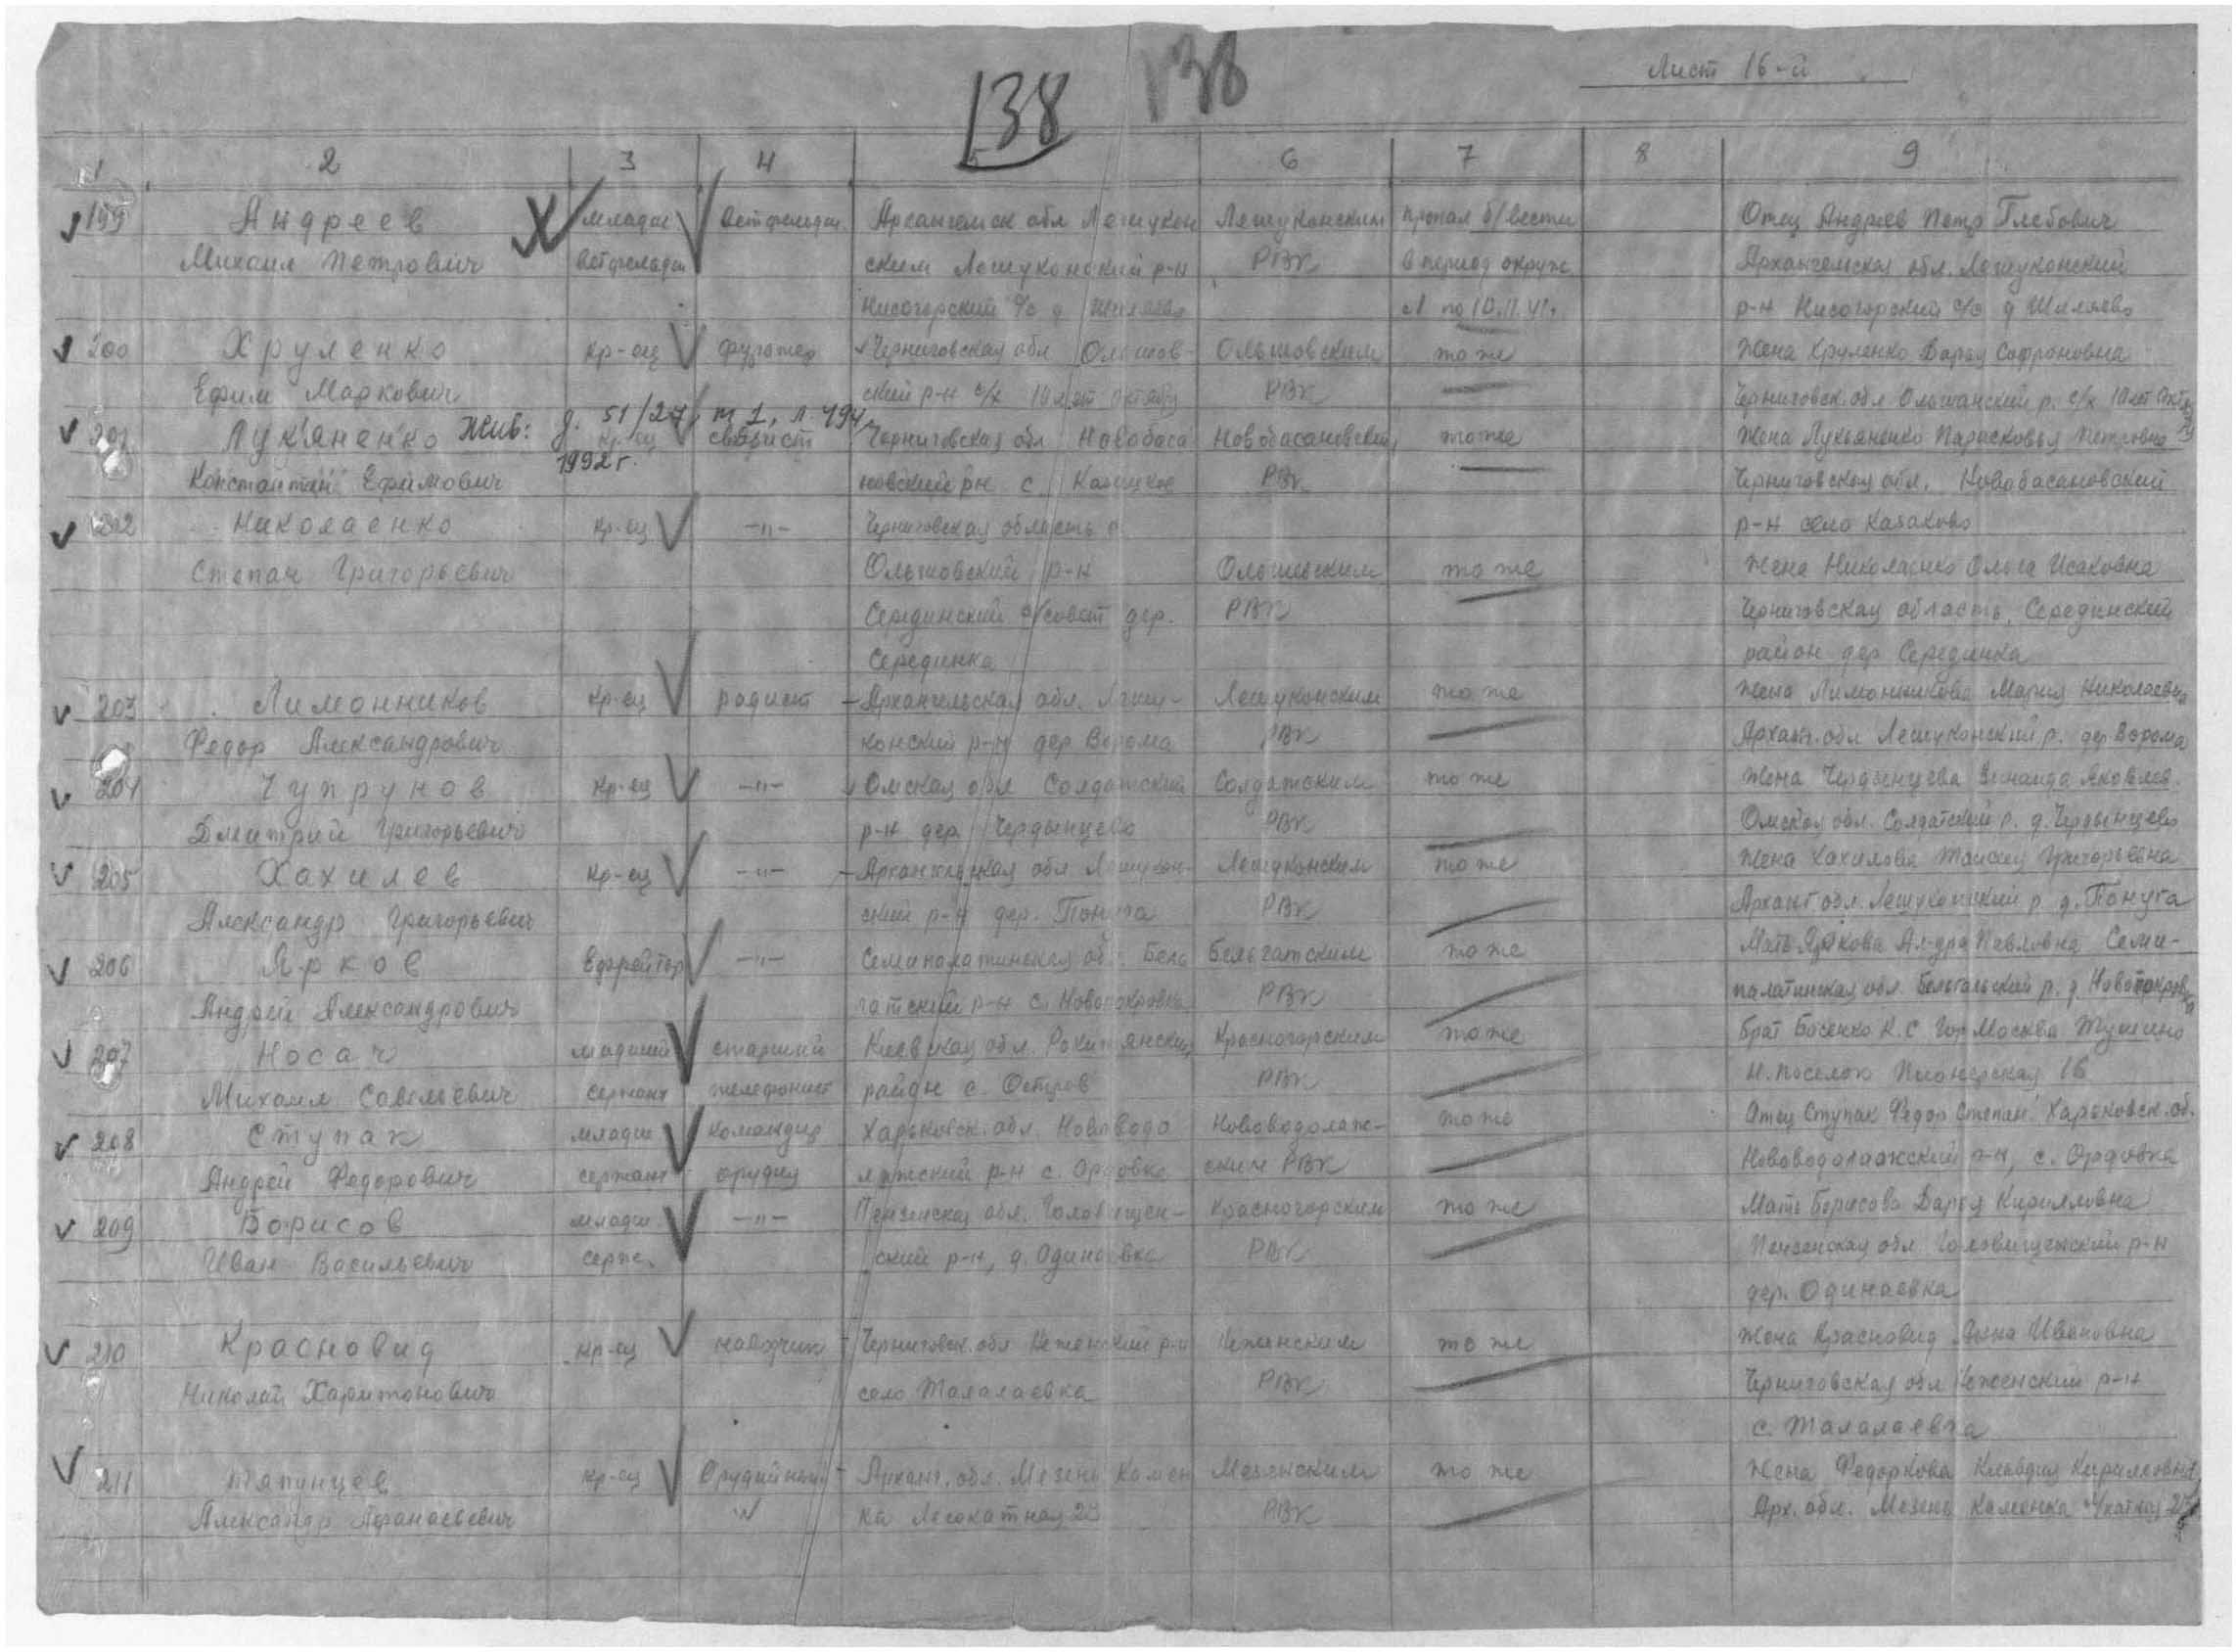 Лист 16-й
138 138
1 2 3 4 6 7 8 9
199 Андреев младш ветфельдш. Арсангельск обл Лешукон Лешуконским пропал б/вести Отец Андреев Петр Глебович
Михаил Петрович ветфельдш ским Лешуконский р-н РВК в период окруж. Архангельская обл. Лешуконский
Нисогорский с/с д Шилаево с1 по 10.11.41. р-н Нисогорский с/с д Шилаево
200 Хруленко кр-ец фуражер Черниговская обл Ольшов- Ольшовским то же Жена Хруленко Дарья Софроновна
Ефим Маркович ский р-н с/х 10 лет октябр РВК Черниговск. обл Ольшанский р. с/х 10 лет Октя
201 Лук'яненко Жив: д. 51/27, т 1, л. 494, кр-ец связист Черниговская обл Новобаса Новобасановским то же Жена Лукьяненко Парасковья Петровна
1992 г.
Константин Ефимович новский рн с. Казацкое РВК Черниговская обл. Новобасановский
202 Николаенко кр-ец -"- Черниговская область р-н село Казаково
Степан Григорьевич Ольшовский р-н Ольшевским то же Жена Николаенко Ольга Исаковна
Серединский с/совет дер. РВК Черниговская область, Серединский
Серединка район дер Серединка
203 Лимонников кр-ец радист Архангельская обл. Лешу- Лешуконским то же Жена Лимонникова Мария Николаевна
Федор Александрович конский р-н дер Ворома РВК Арханг. обл Лешуконский р. дер Ворома
204 Чупрунов кр-ец -"- Омская обл Солдатский Солдатским то же Жена Чердынцева Зинаида Яковлев.
Дмитрий Григорьевич р-н дер. Чердынцево РВК Омская обл. Солдатский р. д. Чердынцево
205 Хахилев кр-ец -"- Архангельская обл Лешукон- Лешуконским то же Жена Хахилова Таисия Григорьевна
Александр Григорьевич ский р-н дер. Понуга РВК Арханг обл. Лешуконский р д. Понуга
206 Ярков Ефрейтор -"- Семипалатинская об. Бель Бельгатским то же Мать Яркова Ал-дра Павловна Семи-
Андрей Александрович гатский р-н с. Новопокровка РВК палатинская обл. Бельгатский р. д. Новопокровка
207 Носач младший старший Киевская обл. Рокитянский Красногорским то же Брат Босенко К. С Гор Москва Тушино
Михаил Савельевич сержант телефонист район с. Острів РВК Н. поселок Пионерская 16
208 Ступак младш командир Харьковск. обл. Нововодо Нововодолаж- то же Отец Ступак Федор Степан. Харьковск. об.
Андрей Федорович сержант орудия лажский р-н с. Ордовка ским РВК Нововодолажский р-н, с. Ордовка
209 Борисов младш. -"- Пензенская обл. Головищен- Красногорским то же Мать Борисова Дарья Кирилловна
Иван Васильевич серж. ский р-н, д. Одинаевка РВК Пензенская обл Головищенский р-н
дер. Одинаевка
210 Красновид кр-ец наводчик Черниговск. обл Неженский р-н Неженским то же Жена Красновид Анна Ивановна
Николай Харитонович село Талалаевка РВК Черниговская обл Неженский р-н
с. Талалаевка
211 Тяпунцев кр-ец Орудийный Арханг. обл. Мезень Камен Мезенским то же Жена Федоркова Клавдия Кирилловна
Александр Афанасьевич ка Лесокатная 23 РВК Арх. обл. Мезень Каменка